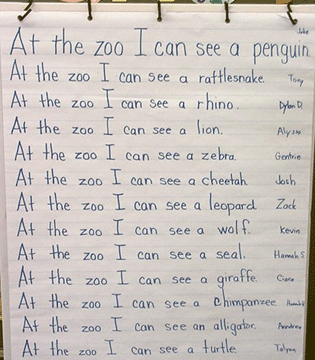 Jake
At the zoo I can see a penguin
At the zoo I can see a rattlesnake. Tony
At the zoo I can see a rhino. Dylan D.
At the zoo I can see a lion. Alyssa
At the zoo I can see a zebra. Gentrie
At the zoo I can see a cheetah Josh
At the zoo I can see a leopard Zack
At the zoo I can see a wolf. Kevin
At the zoo I can see a seal. Hannah S
At the zoo I can see a giraffe.
At the zoo I can see a chimpanzee
At the zoo I can see an alligator. Andrew
At the zoo I can see a turtle